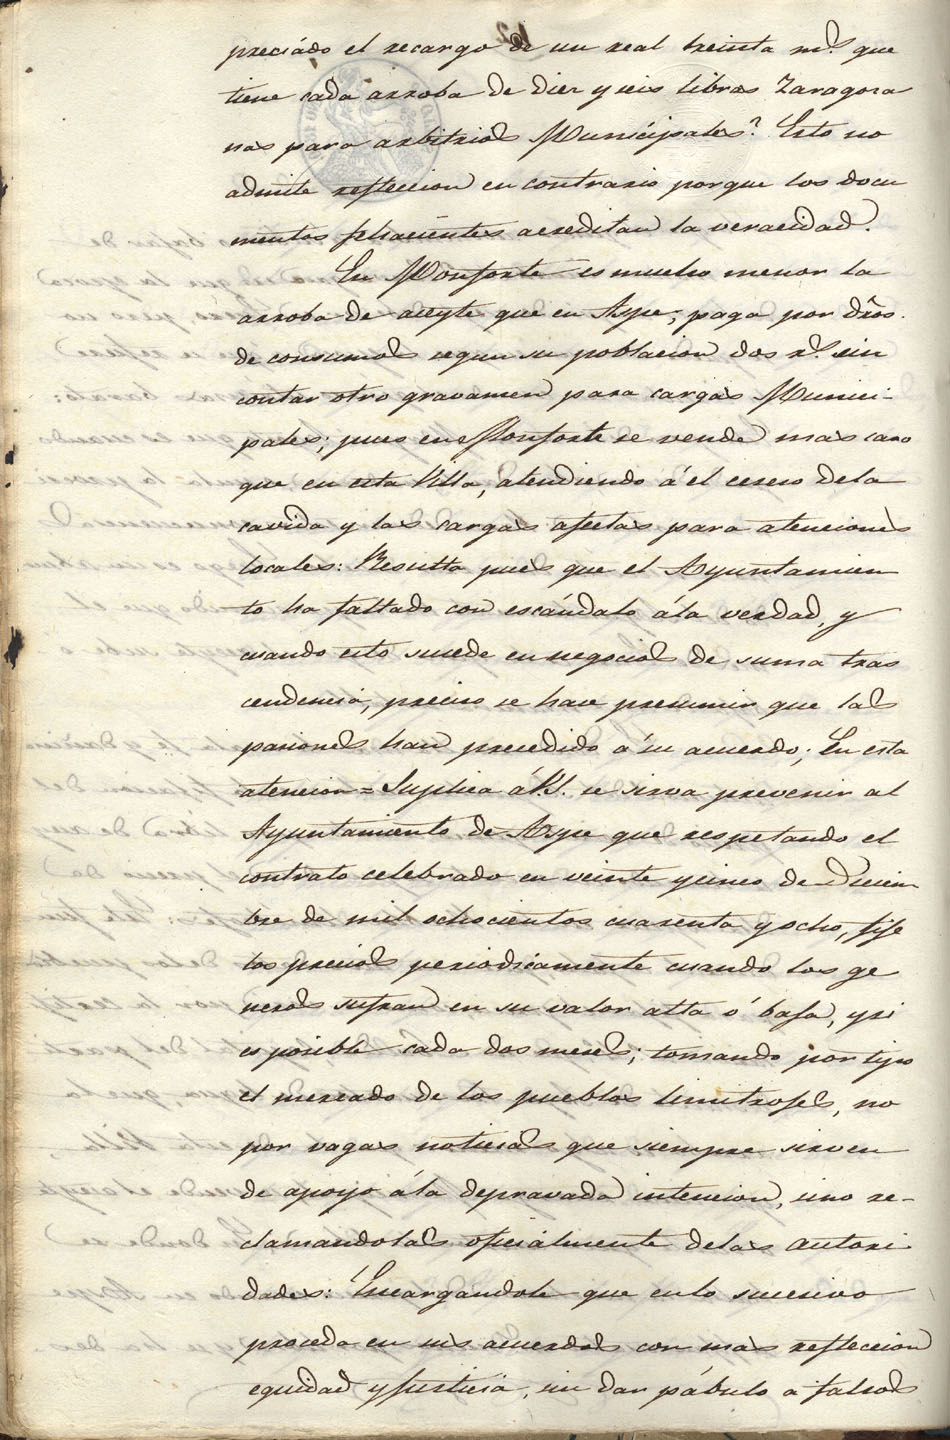 preciádo el recargo de un real treinta mrs. que
tiene cada arroba de diez y seis libras Zaragoza
nas para arbitrios Municipales? Esto no
admite refleccion en contrario porque los docu
mentos fehacientes acreditan la veracidad.
En Monforte es mucho menor la
arroba de aceyte que en Aspe; paga por dros.
de consumos segun su poblacion dos rs. sin
contar otro gravamen para cargas Munici-
pales; pues en Monforte se vende mas caro
que en esta Villa, atendiendo á el ceseso dela
cavida y las cargas afectas para atenciones
locales: Resulta pues que el Ayuntamien
to ha faltado con escándalo ála verdad, y
cuando esto sucede en negocios de suma tras
cendencia, preciso se hace presumir que las
pasiones han precedido á su acuerdo; En esta
atencion = Suplica á V.S. se sirva prevenir al
Ayuntamiento de Aspe que respetando el
contrato celebrado en veinte y cinco de Diciem
bre de mil ochocientos cuarenta y ocho, fije
los precios periodicamente cuando los ge
neros sufran en su valor alta ó baja, y si
es posible cada dos meses; tomando por tipo
el mercado de los pueblos limitrofes, no
por vagas noticias que siempre sirven
de apoyo ála depravada intencion, sino re-
clamandolas oficialmente delas autori
dades: Encargandole que en lo sucesivo
proceda en sus acuerdos con mas refleccion
equidad y justicia, sin dar pábulo a falsos